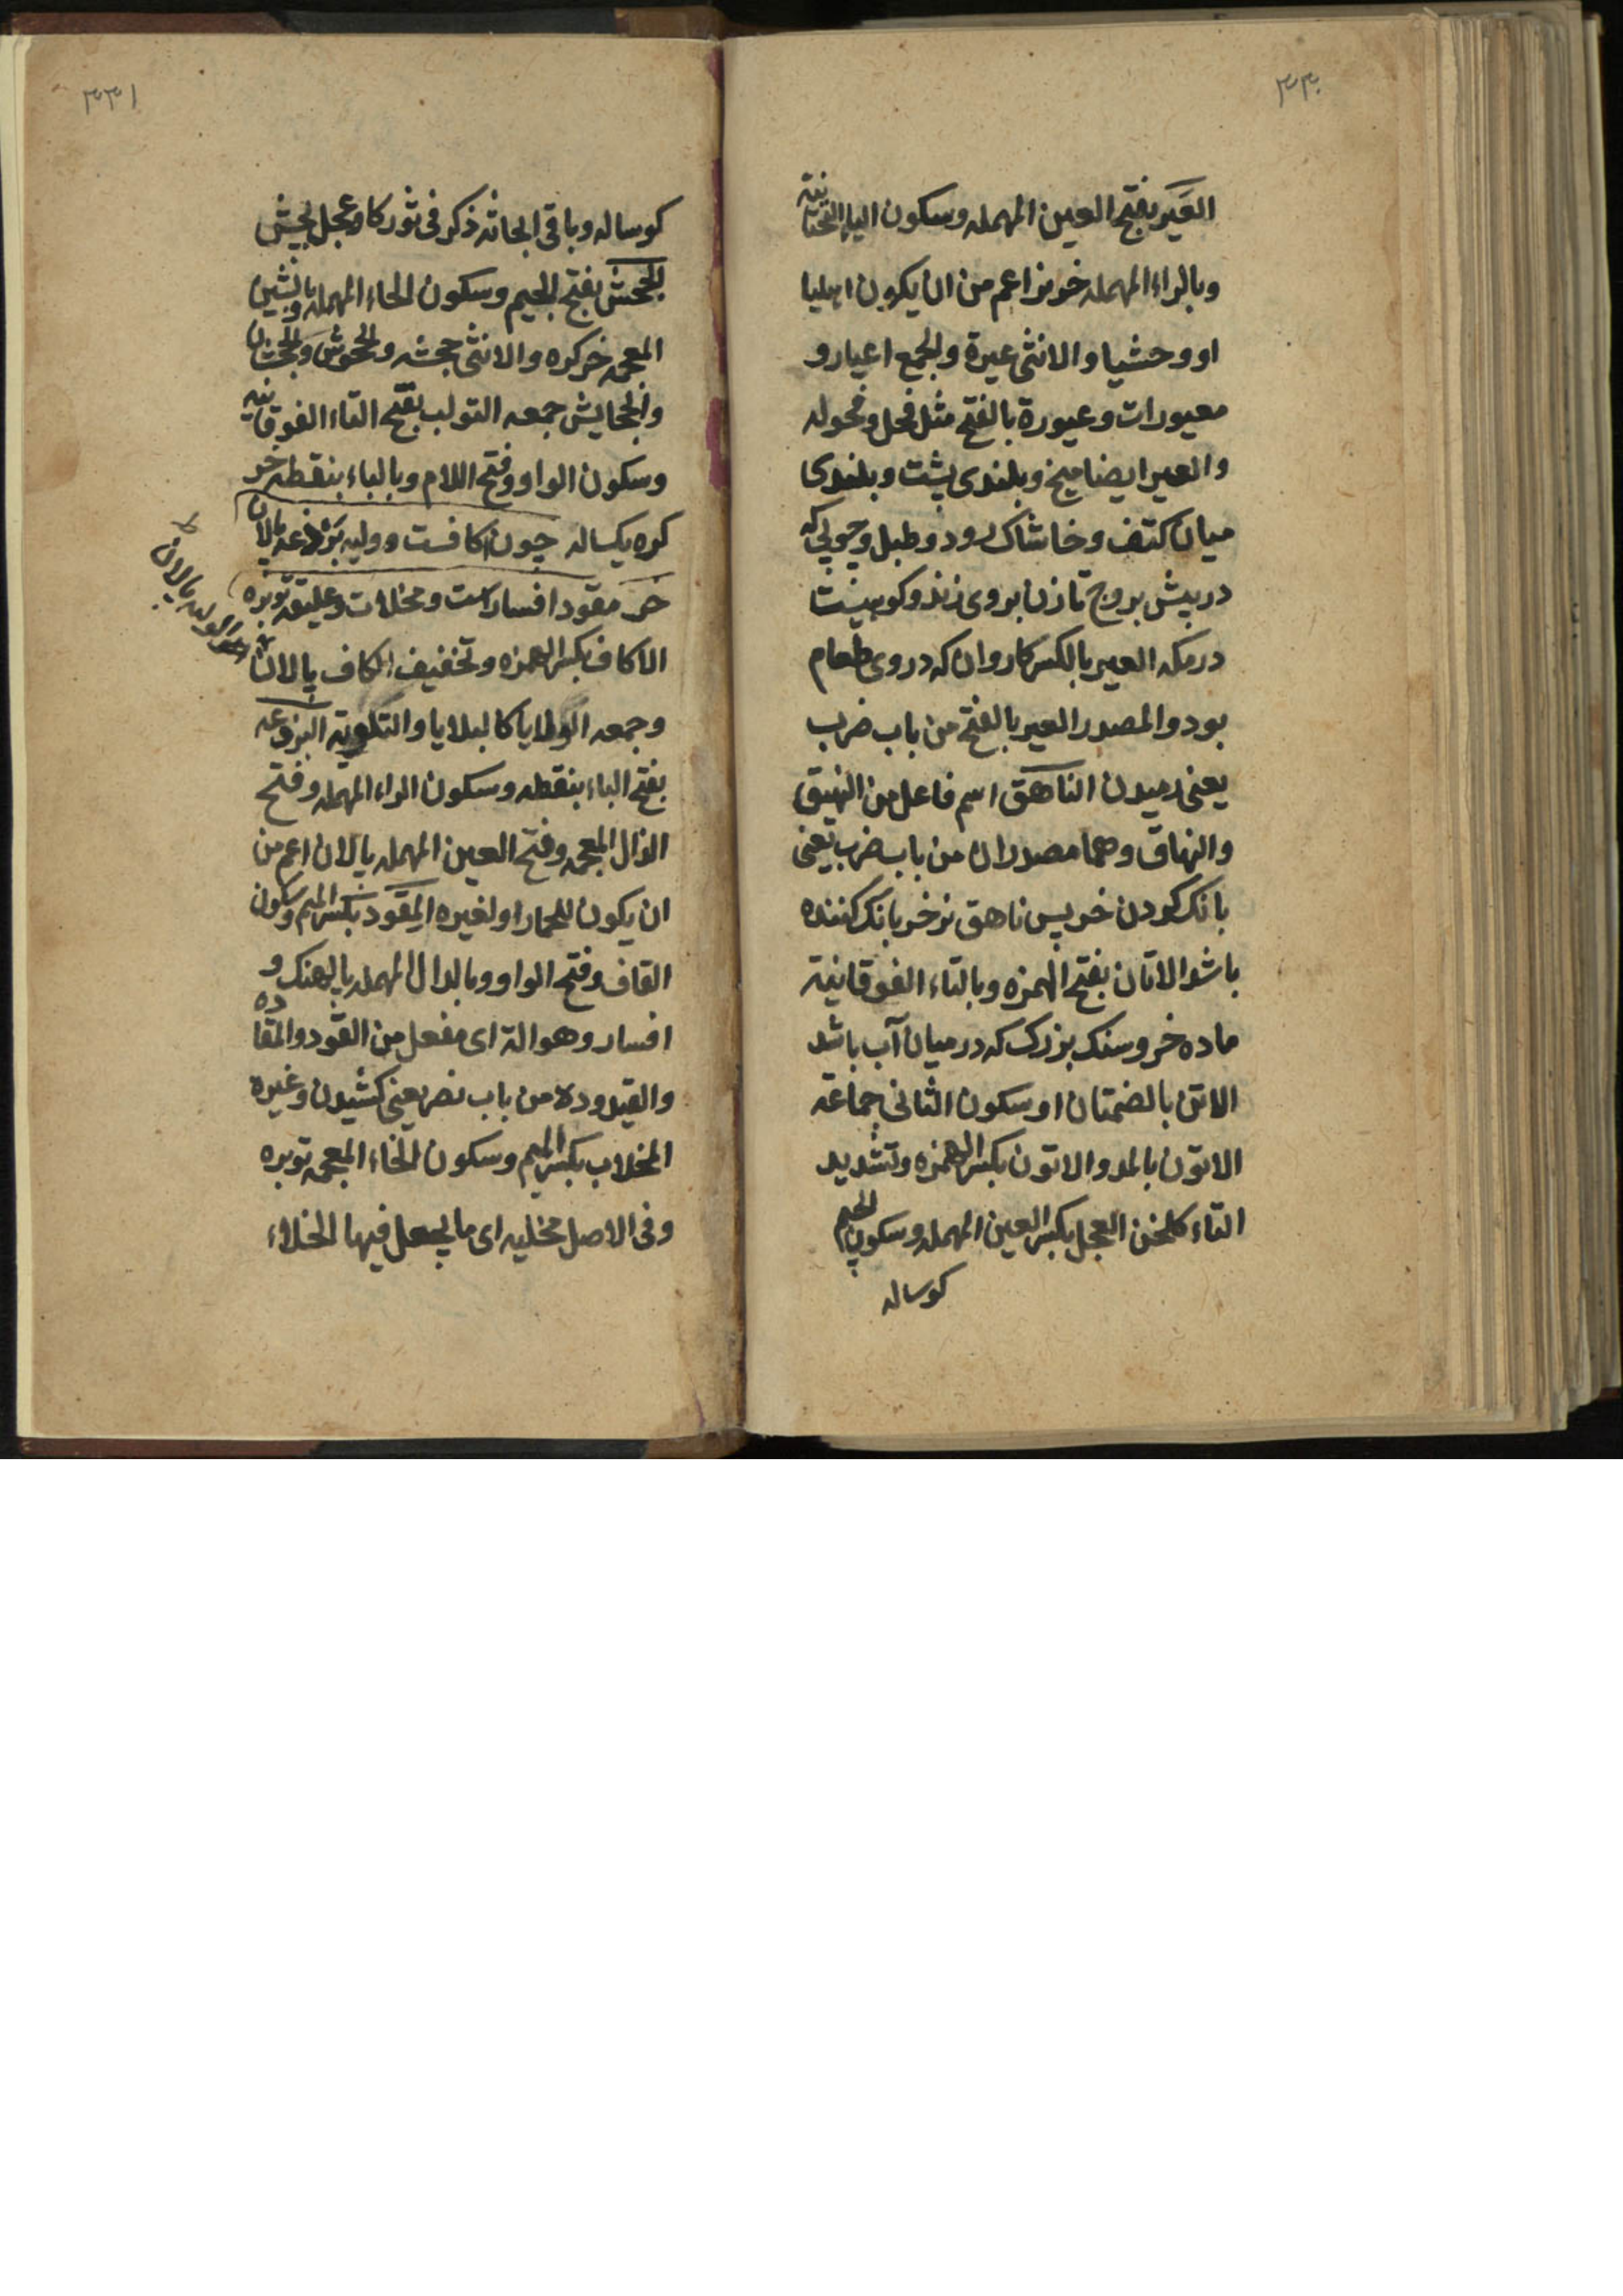 ٣٣٠
العَیر بفتح العین المهمله وسکون الیاء التحتانیة
وبالراء المهمله خر نر اعم من ان یکون اهلیا
او وحشیا والانثی عیرة والجمع اعیار و
معیورات وعیورة بالفتح مثل فحل وفحوله
والعیر ایضا میخ وبلندی پشت وبلندی
میان کتف وخاشاک رود وطبل وچوبی که
در پیش بروج تا زنان بروی زنند وکوهیست
در مکه العیر بالکسر کاروان که در وی طعام
بود والمصدر العیر بالفتح من باب ضرب
یعنی رمیدن الناهق اسم فاعل من النهیق
والنهاق وهما مصدران من باب ضرب یعنی
بانک کردن خر پس ناهق نر خر بانک کننده
باشد الاتان بفتح الهمزه وبالتاء الفوقانیة
ماده خر وسنک بزرک که در میان آب باشد
الاتن بالضمتان او سکون الثانی جماعة
الاتون بالمد والاتون بکسر الهمزه وتشدید
التاء کلخن العجل بکسر العین المهمله وسکون الجیم
کوساله
٣٣١
کوساله وباقی ابحاثه ذکر فی ثور کاو عجل بچش
الجحش بفتح الجیم وسکون الحاء المهمله وبالشین
المعجمه خر کره والانثی جحشه والجحوش والجحشان
والجحایش جمعه التولب بفتح التاء الفوقانیه
وسکون الواو وفتح اللام وبالباء بنقطه خر
کره یکساله چون اکافست وولیه برذعه پالان
خر مقود افسارست ومخلات وعلیقه توبره
الاکاف بکسر الهمزه وتخفیف الکاف پالان
وجمعه الولایا کالبلایا البرذعه
بفتح الباء بنقطه وسکون الراء المهمله وفتح
الذال المعجمه وفتح العین المهمله پالان اعم من
ان یکون للحمار او لغیره المِقود بکسر المیم وسکون
القاف وفتح الواو وبالدال المهمله پالهنک و
افسار وهو الة ای مفعل من القود والمقاده
والقیدوده من باب نصر یعنی کشیدن وغیره
المخلاب بکسر المیم وسکون الخاء المعجمه توبره
وفی الاصل مخلیه ای ما یجعل فیها الخلاء